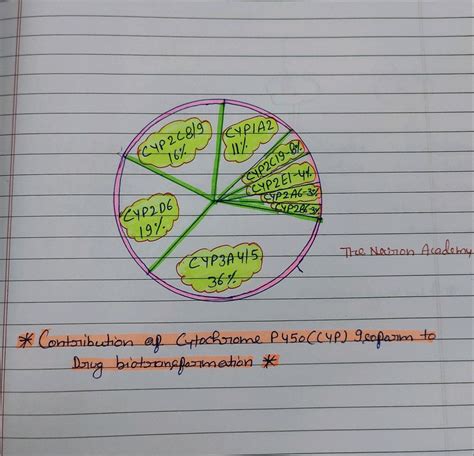 CYP2C8/9
16%
CYP1A2
11%
CYP2C19-8%
CYP2E1-4%
CYP2A6-3%
CYP2B6-3%
CYP2D6
19%
CYP3A4/5
36%
The Neuron Academy
* Contribution of Cytochrome P450(CYP) Isoform to
Drug biotransformation *